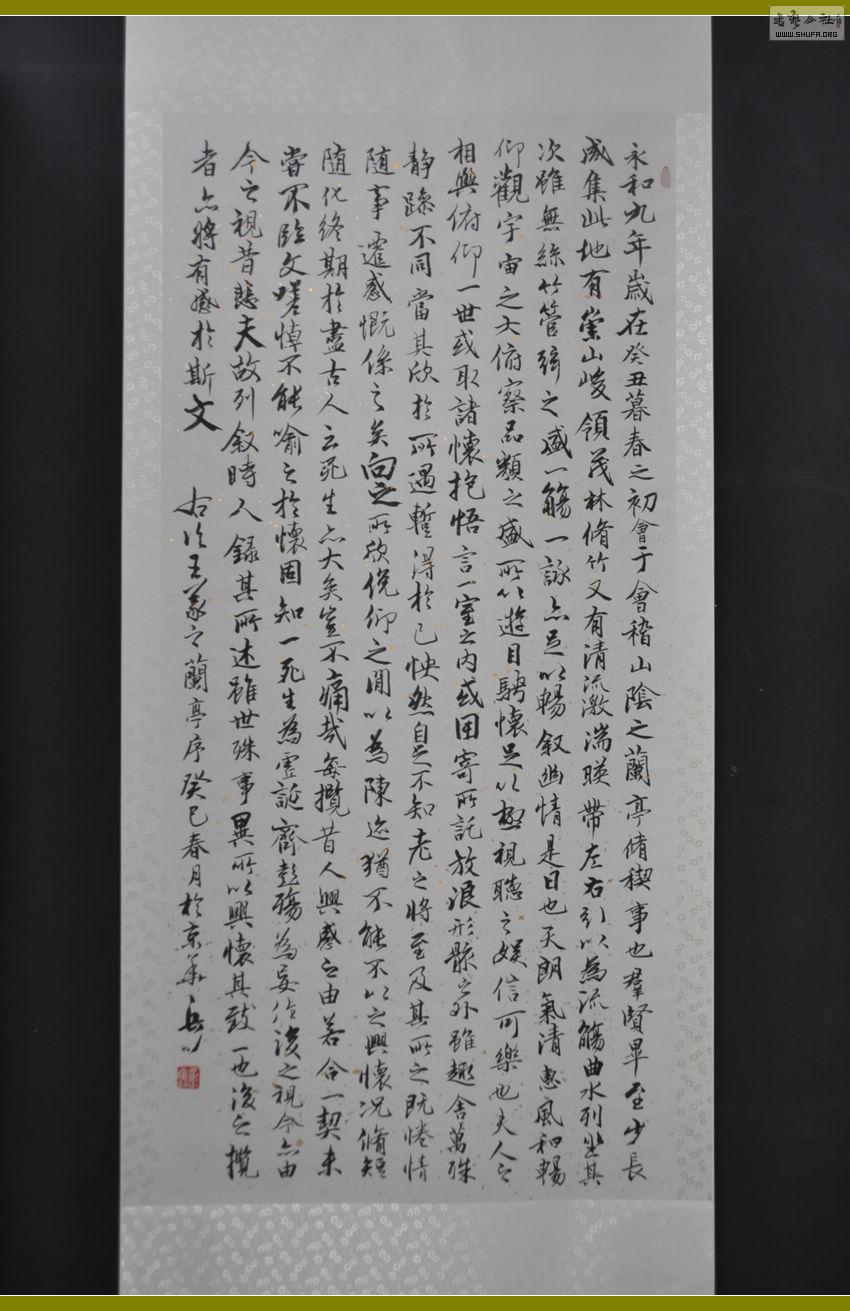 永和九年歲在癸丑暮春之初會于會稽山陰之蘭亭脩稧事也羣賢畢至少長
咸集此地有崇山峻領茂林脩竹又有清流激湍暎帶左右引以為流觴曲水列坐其
次雖無絲竹管弦之盛一觴一詠亦足以暢叙幽情是日也天朗氣清惠風和暢
仰觀宇宙之大俯察品類之盛所以遊目騁懷足以極視聽之娱信可樂也夫人之
相與俯仰一世或取諸懷抱悟言一室之内或因寄所託放浪形骸之外雖趣舍萬殊
静躁不同當其欣於所遇蹔得於己怏然自足不知老之將至及其所之既惓情
随事遷感慨係之矣向之所欣俛仰之間以為陳迹猶不能不以之興懷况脩短
随化終期於盡古人云死生亦大矣豈不痛哉每攬昔人興感之由若合一契未
嘗不臨文嗟悼不能喻之於懷固知一死生為虚誕齊彭殤為妄作後之視今亦由
今之視昔悲夫故列叙時人録其所述雖世殊事異所以興懷其致一也後之攬
者亦將有感於斯文
右臨王羲之蘭亭序癸巳春月於京華
書藝公社
WWW.SHUFA.ORG